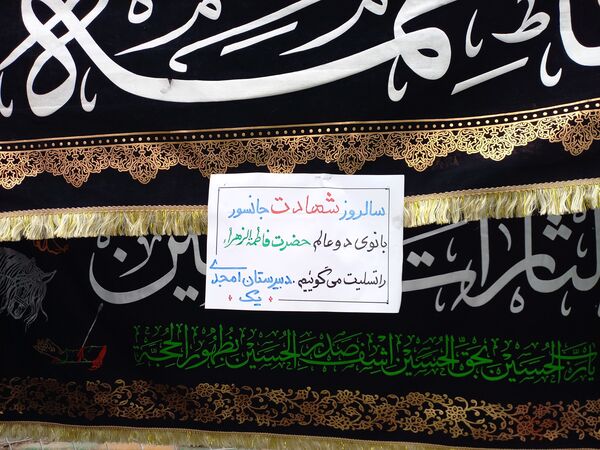 فاطمه
سالروز شهادت جانسوز
بانوی دو عالم حضرت فاطمة الزهراء
را تسلیت می گوئیم. دبیرستان امجدی
یک
لثارات
یارب الحسین بحق الحسین اشف صدر الحسین بظهور الحجة